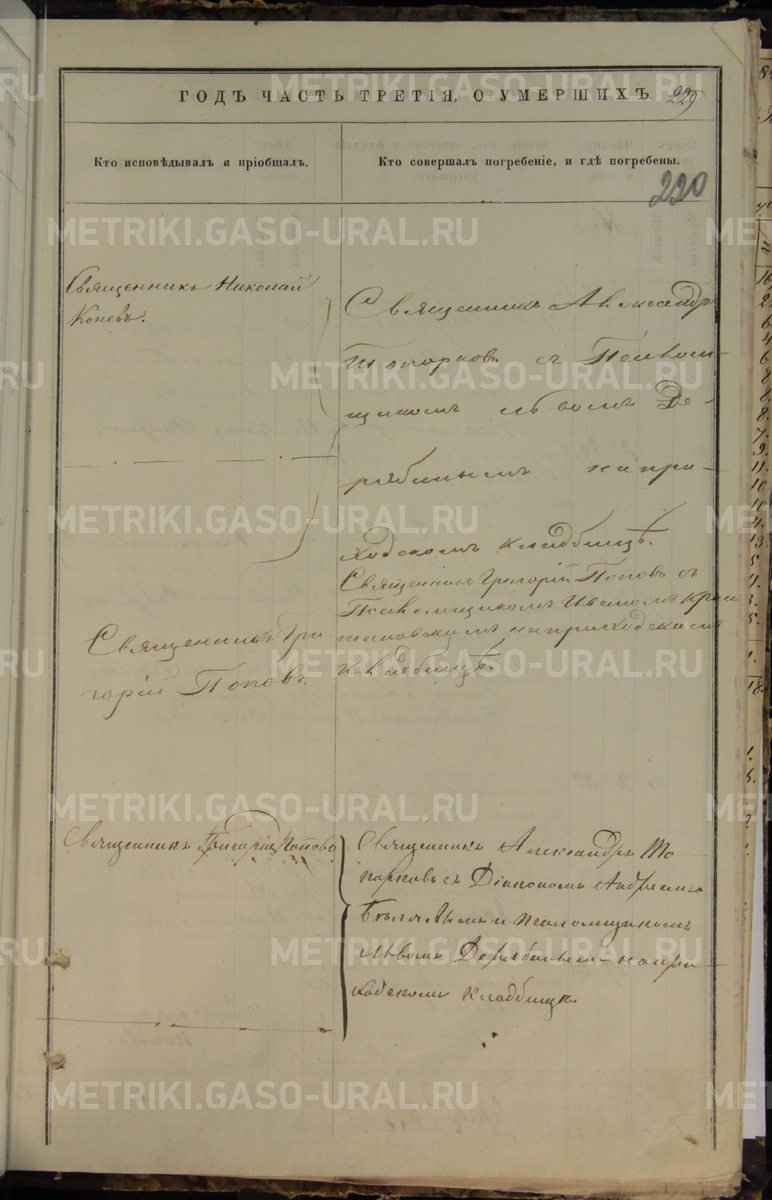 ГОДЪ ЧАСТЬ ТРЕТІЯ, О УМЕРШИХЪ. 229
Кто исповѣдывалъ и пріобщалъ.
Кто совершалъ погребеніе, и гдѣ погребены.
220
Священникъ Николай
Коневъ.
Священникъ Александръ
Топорковъ съ Псалом-
щикомъ Львомъ Де-
рябинымъ на при-
ходскомъ кладбищѣ.
Священникъ Григорій Поповъ съ
Псаломщикомъ Иваномъ
на приходскомъ
кладбищѣ.
Священникъ Гри-
горій Поповъ.
Священникъ Григорій Поповъ
Священникъ Александръ То-
порковъ съ Діакономъ Андреемъ
и псаломщикомъ
Львомъ Дерябинымъ на при-
ходскомъ кладбищѣ.
METRIKI.GASO-URAL.RU